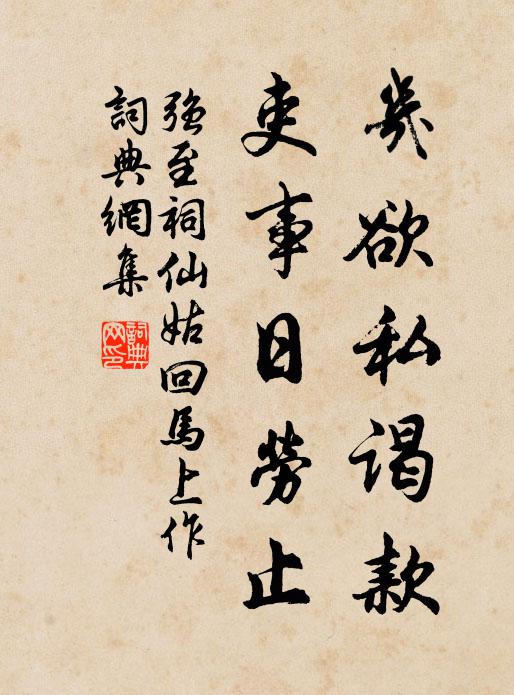 幾欲私謁款
吏事日勞止
強至祠仙姑回馬上作
詞典網集
詞典网印